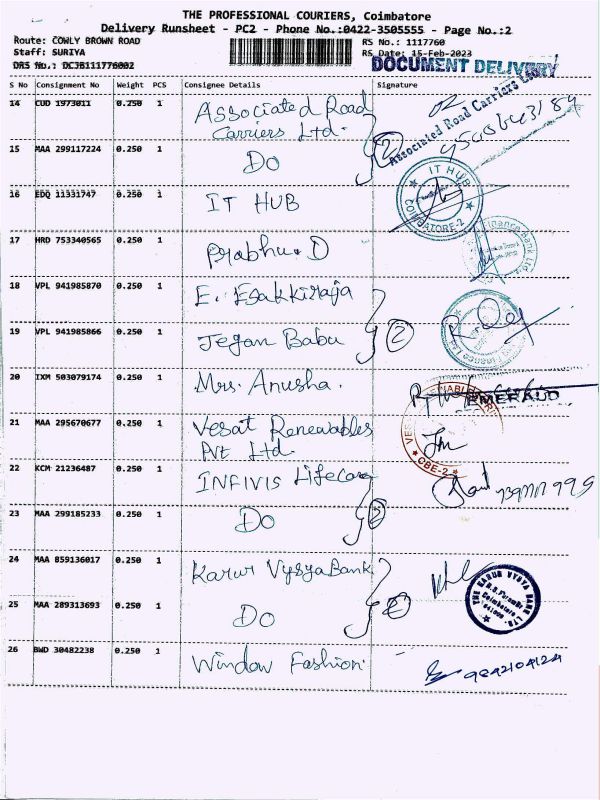 THE PROFESSIONAL COURIERS, Coimbatore
Delivery Runsheet - PC2 - Phone No.:0422-3505555 - Page No.:2
Route: COWLY BROWN ROAD RS No.: 1117760
Staff: SURIYA RS Date: 15-Feb-2023
DRS No.: DCJB111776002 DOCUMENT DELIVERY
S No Consignment No Weight PCS Consignee Details Signature
14 CUD 1973011 0.250 1 Associated Road
Carriers Ltd.
Associated Road Carriers Ltd
15 MAA 299117224 0.250 1 Do 2
16 EDQ 11331747 0.250 1 IT HUB
IT HUB
COIMBATORE-2
17 HRD 753340565 0.250 1 Prabhu. D
18 VPL 941985870 0.250 1 E. Esakkiraja
19 VPL 941985866 0.250 1 Jegan Babu 2
20 IXM 503079174 0.250 1 Mrs. Anusha.
EMERAUD
21 MAA 295670677 0.250 1 Vesat Renewables
Pvt Ltd.
CBE-2
22 KCM 21236487 0.250 1 INFIVIS Lifecare
23 MAA 299185233 0.250 1 Do 2
24 MAA 859136017 0.250 1 Karur VysyaBank
THE KARUR VYSYA BANK LTD.
R.S.Puram Br
Coimbatore
641002
25 MAA 289313693 0.250 1 Do 2
26 BWD 30482238 0.250 1 Window Fashion. 9842104124